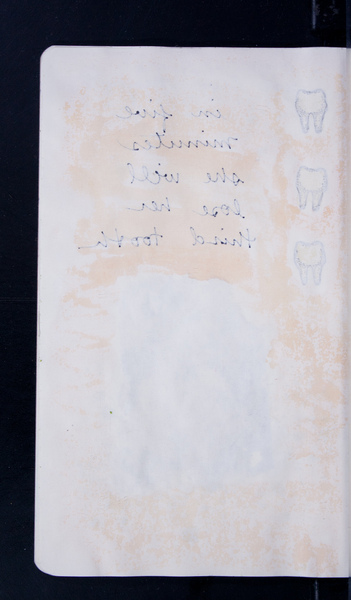 in five
minutes
she will
lose her
third tooth